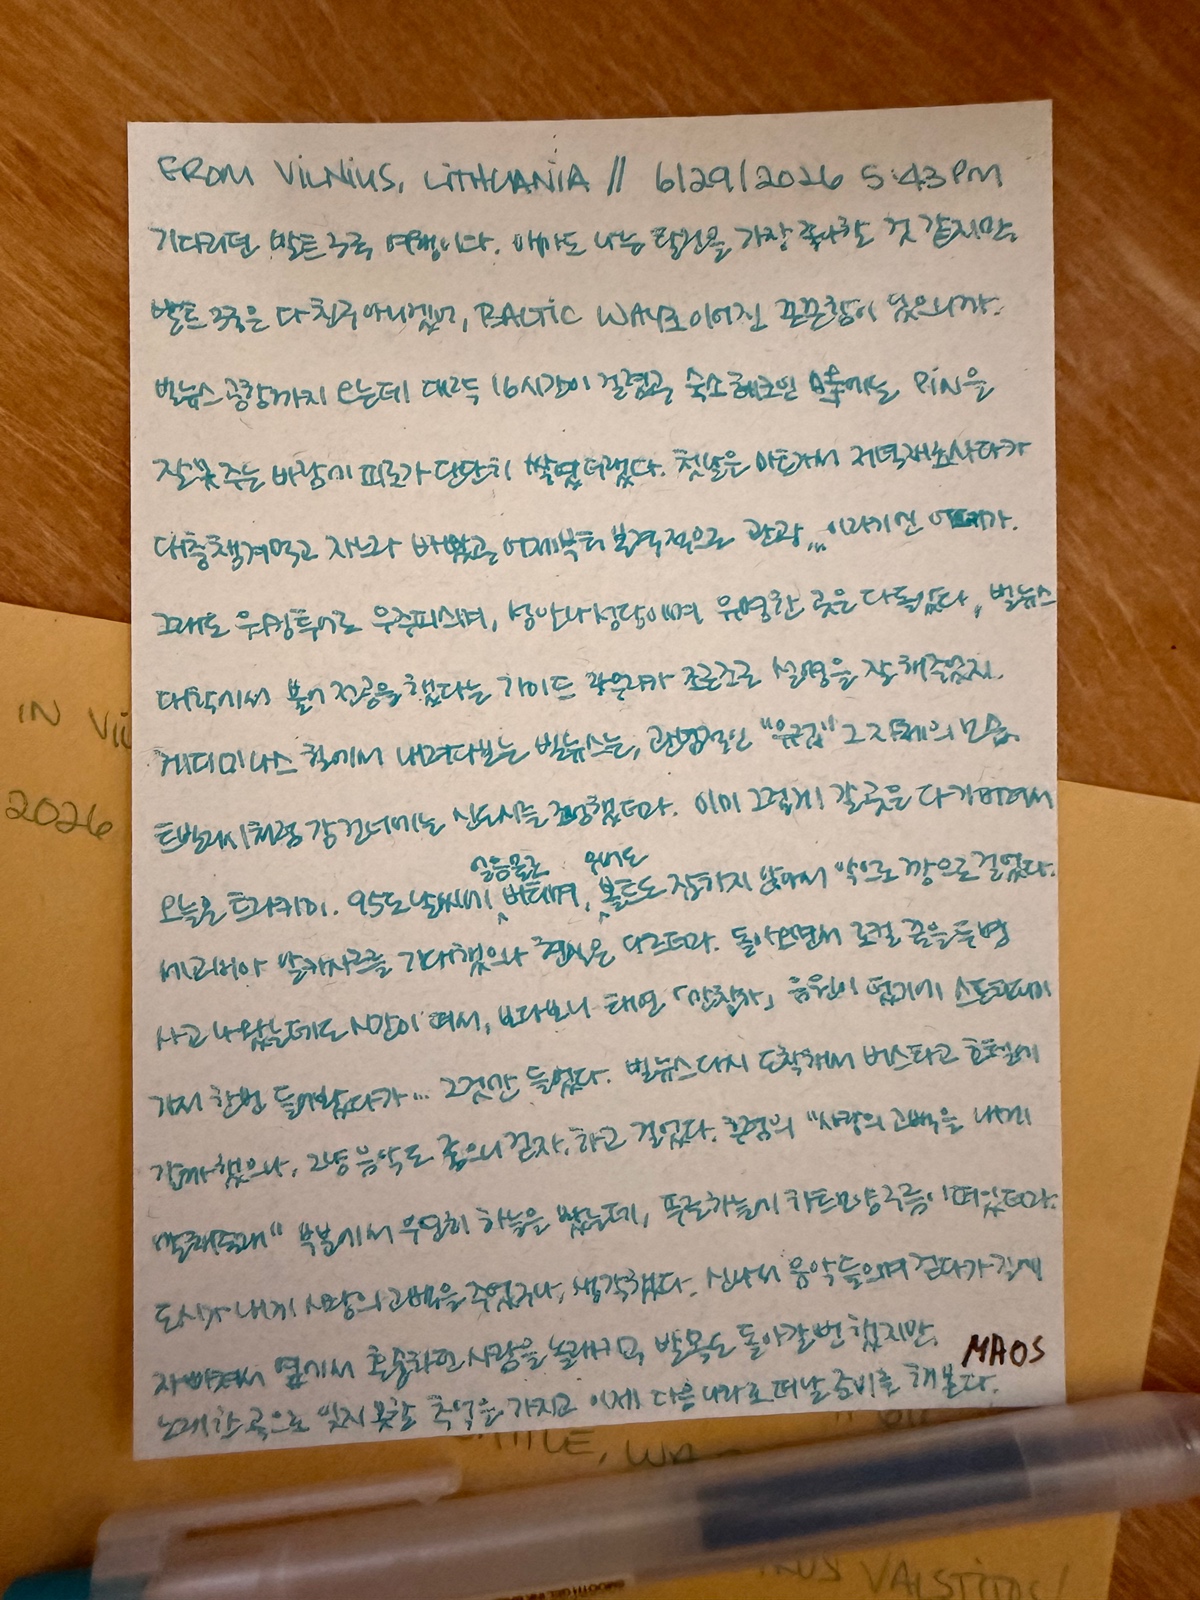 FROM VILNIUS, LITHUANIA // 6/29/2026 5:43PM
기다리던 발트 3국 여행이다. 아마도 나는 탈린을 가장 좋아할 것 같지만,
발트 3국은 다 친구 아니겠냐, BALTIC WAY로 이어진 끈끈함이 있으니까.
빌뉴스 공항까지 오는데 대략 16시간이 걸렸고, 숙소 체크인 때는 PIN을
잘못 주는 바람에 피로가 단단히 쌓였더랬다. 첫날은 마트가서 저녁재료 사다가
대충 챙겨먹고 자느라 바빴고, 어제부터 본격적으로 관광... 이라기엔
그래도 워킹투어로 우주피스며, 성안나성당이며 유명한 곳은 다 둘렀다, 빌뉴스
대학에서 불어 전공을 했다는 가이드 조곤조곤 설명을 잘 해주었지.
게디미나스 성에서 내려다보는 빌뉴스는, 관념적인 "유럽" 그 자체의 모습.
트빌리시처럼 강 건너에는 신도시를 조성했더라. 이미 그렇게 갈 곳은 다 가버려서
얼음물로 우버도
오늘은 트라카이. 95도 날씨에 버티며, 볼트도 잡히지 않아서 악으로 깡으로 걸었다.
발카자르를 기대했으나 현실은 다르더라. 돌아오면서 로컬 꿀을 두병
사고 나왔는데도 시간이 떠서, 보다보니 태연 「만찬가」 음원이 떴기에
가서 한번 들어봤다가... 그것만 들었다. 빌뉴스 다시 도착해서 버스타고 호텔에
갈까 했으나, 그냥 음악도 좋으니 걷자, 하고 걸었다. "사랑의 고백을 내게
말해줄래" 부분에서 우연히 하늘을 봤는데, 푸른하늘에 하트모양 구름이 떠있더라.
도시가 내게 사랑의 고백을 주었구나, 생각했다. 신나서 음악 들으며 걷다가 길에
자빠져서 옆에서 사람을 놀래키고, 발목도 돌아갈 뻔 했지만,
MAOS
노래 한 곡으로 잊지 못할 추억을 가지고 이제 다음 나라로 떠날 준비를 해본다.
IN VIL
2026
SEATTLE, WA
VALSTIJOS!